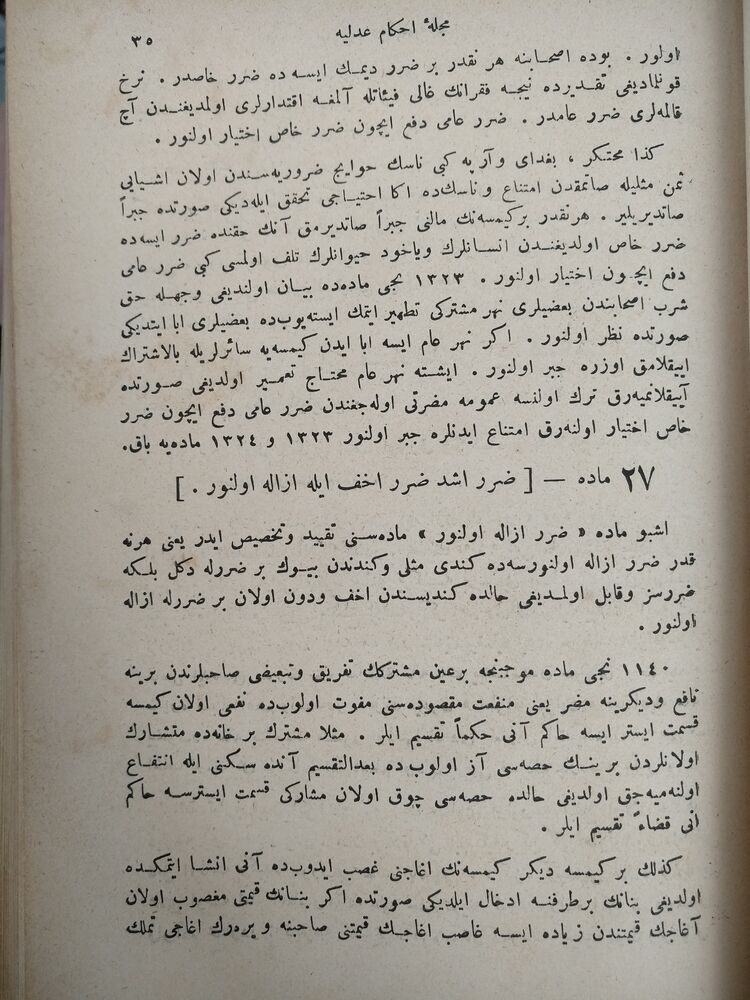 مجلهٔ احكام عدليه
٣٥
اولور . بوده اصحابنه هر نقدر بر ضرر ديمك ايسه ده ضرر خاصدر . نرخ
قونمادیغی تقديرده نيجه فقرانك غالی فيئاتله آلمغه اقتدارلری اولمديغندن آچ
قالمه‌لری ضرر عامدر . ضرر عامی دفع ايچون ضرر خاص اختيار اولنور .
كذا محتكر ، بغدای و آرپه كبی ناسك حوايج ضروريه‌سندن اولان اشيايی
ثمن مثليله صاتمقدن امتناع و ناسك‌ده اكا احتياجی تحقق ايله‌ديكی صورتده جبراً
صاتديريلير . هرنقدر بركيمسه‌نك مالنی جبراً صاتديرمق آنك حقنده ضرر ايسه‌ده
ضرر خاص اولديغندن انسانلرك وياخود حيوانلرك تلف اولمسی كبی ضرر عامی
دفع ايچون اختيار اولنور . ١٣٢٣ نجی ماده‌ده بيان اولنديغی وجهله حق
شرب اصحابندن بعضيلری نهر مشتركی تطهير ايتمك ايسته‌يوب‌ده بعضيلری ابا ايتديكی
صورتده نظر اولنور . اكر نهر عام ايسه ابا ايدن كيمسه‌يه سائرلريله بالاشتراك
آييقلامق اوزره جبر اولنور . ايشته نهر عام محتاج تعمير اولديغی صورتده
آييقلانميه‌رق ترك اولنسه عمومه مضرتی اوله‌جغندن ضرر عامی دفع ايچون ضرر
خاص اختيار اولنه‌رق امتناع ايدنلره جبر اولنور ١٣٢٣ و ١٣٢٤ ماده‌يه باق.
٢٧ ماده — [ ضرر اشد ضرر اخف ايله ازاله اولنور . ]
اشبو ماده « ضرر ازاله اولنور » ماده‌سنی تقييد وتخصيص ايدر يعنی هرنه
قدر ضرر ازاله اولنورسه‌ده كندی مثلی وكندندن بيوك بر ضررله دكل بلكه
ضررسز وقابل اولمديغی حالده كنديسندن اخف ودون اولان بر ضررله ازاله
اولنور .
١١٤٠ نجی ماده موجبنجه برعين مشتركك تفريق وتبعيضی صاحبلرندن برينه
نافع وديكرينه مضر يعنی منفعت مقصوده‌سنی مفوت اولوب‌ده نفعی اولان كيمسه
قسمت ايستر ايسه حاكم آنی حكماً تقسيم ايلر . مثلا مشترك بر خانه‌ده متشارك
اولانلردن برينك حصه‌سی آز اولوب ده بعدالتقسيم آنده سكنی ايله انتفاع
اولنه‌ميه‌جق اولديغی حالده حصه‌سی چوق اولان مشاركی قسمت ايسترسه حاكم
آنی قضاءً تقسيم ايلر .
كذلك بر كيمسه ديكر كيمسه‌نك اغاجنی غصب ايدوب‌ده آنی انشا ايتمكده
اولديغی بنانك برطرفنه ادخال ايلديكی صورتده اكر بنانك قيمتی مغصوب اولان
آغاجك قيمتندن زياده ايسه غاصب اغاجك قيمتنی صاحبنه ويره‌رك اغاجی تملك